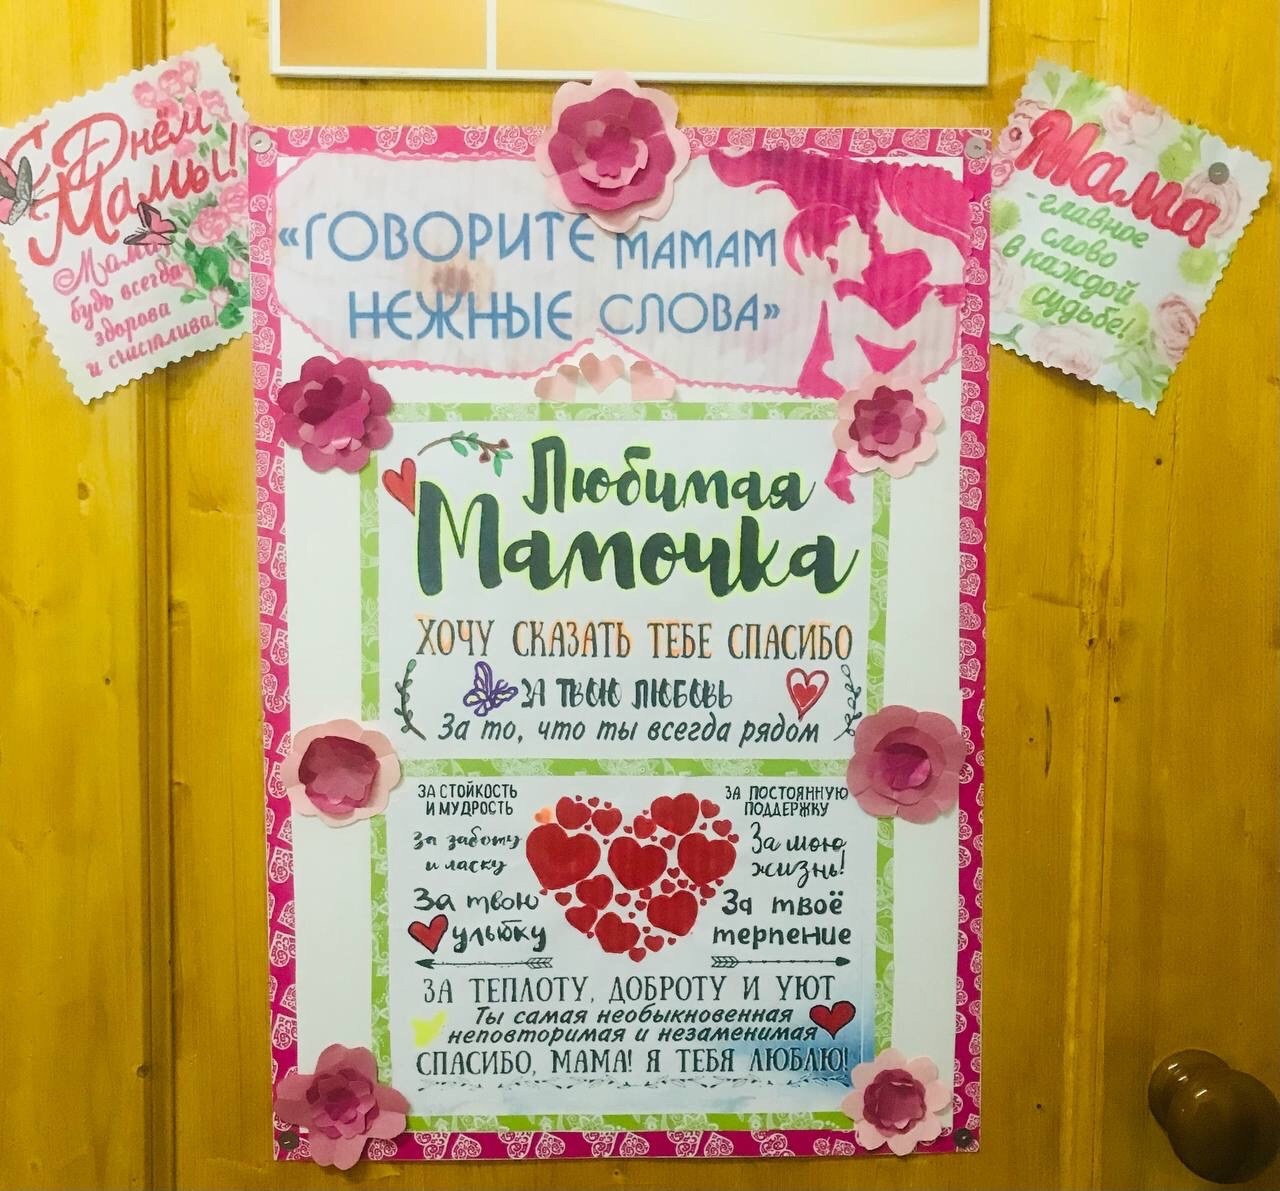 С Днём
Мамы!
Мама
будь всегда
здорова
и счастлива!
«ГОВОРИТЕ МАМАМ
НЕЖНЫЕ СЛОВА»
Мама
-главное
слово
в каждой
судьбе!
Любимая
Мамочка
ХОЧУ СКАЗАТЬ ТЕБЕ СПАСИБО
ЗА ТВОЮ ЛЮБОВЬ
За то, что ты всегда рядом
ЗА СТОЙКОСТЬ
И МУДРОСТЬ
За заботу
и ласку
За твою
улыбку
ЗА ПОСТОЯННУЮ
ПОДДЕРЖКУ
За мою
жизнь!
За твоё
терпение
ЗА ТЕПЛОТУ, ДОБРОТУ И УЮТ
Ты самая необыкновенная
неповторимая и незаменимая
СПАСИБО, МАМА! Я ТЕБЯ ЛЮБЛЮ!